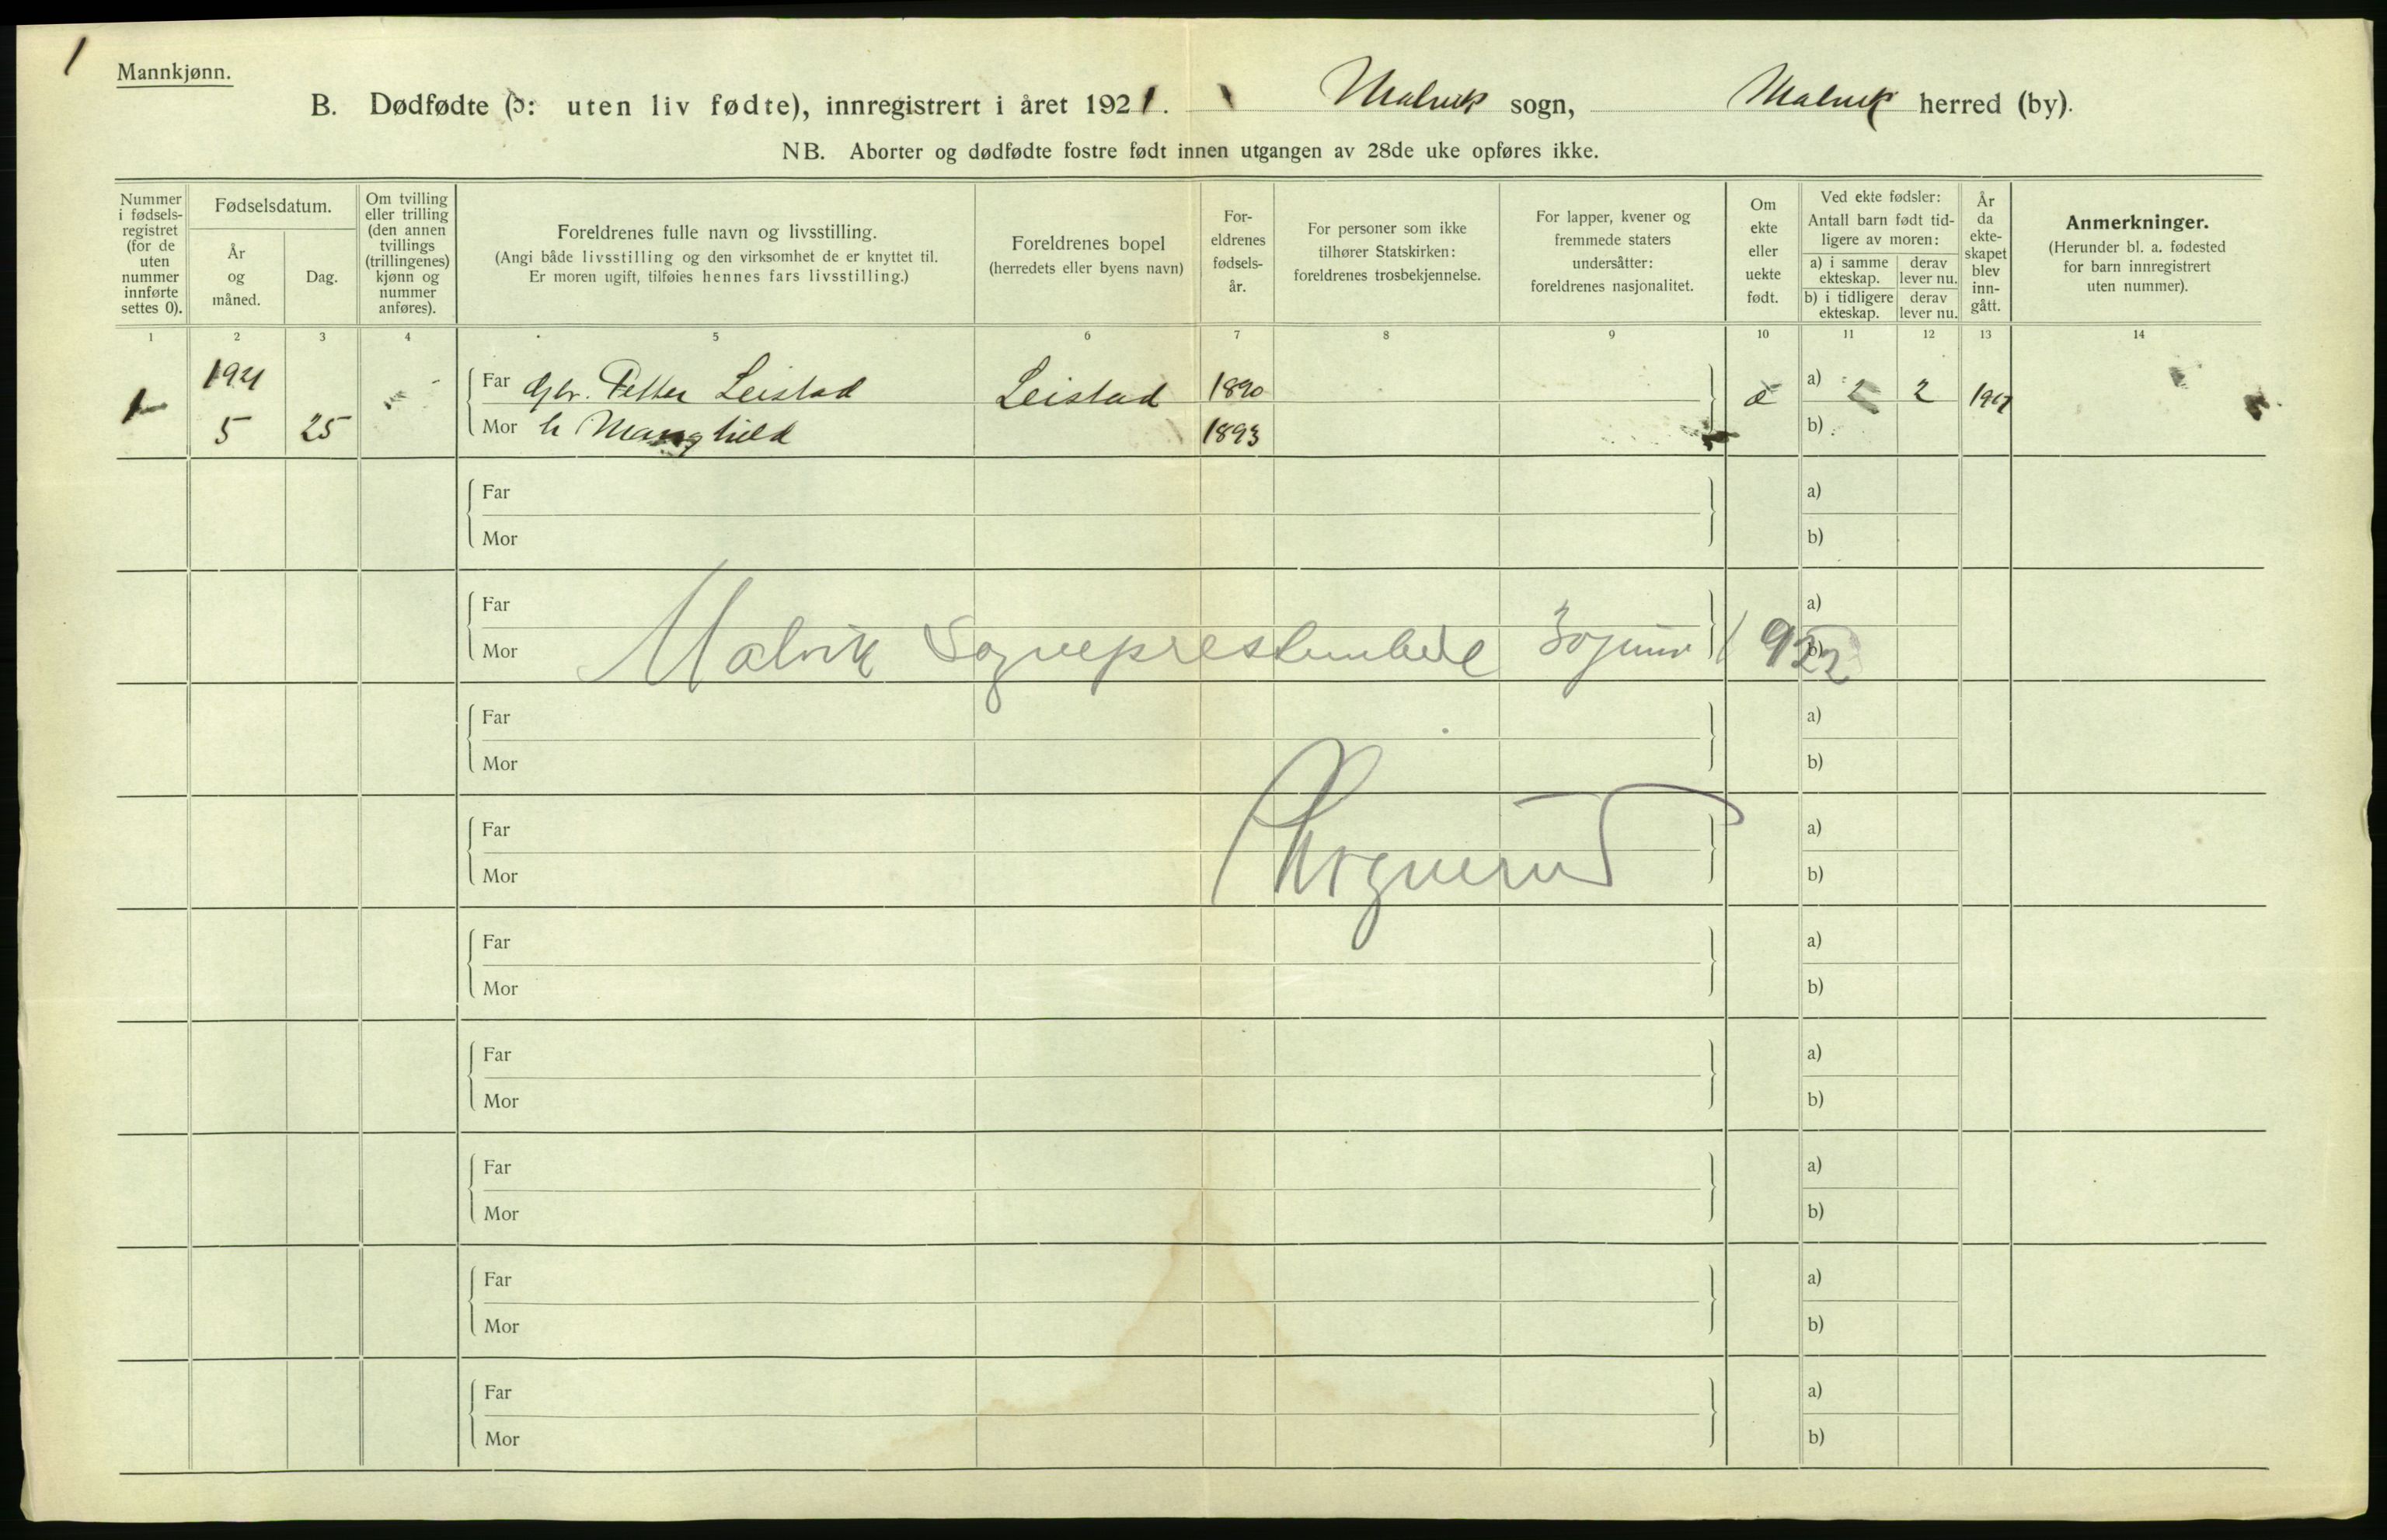 1
Mannkjønn.
B. Dødfødte (ɔ: uten liv fødte), innregistrert i året 1921. Malvik sogn, Malvik herred (by).
NB. Aborter og dødfødte fostre født innen utgangen av 28de uke opføres ikke.
Nummer i fødsels-registret (for de uten nummer innførte settes 0).
Fødselsdatum.
År og måned.
Dag.
Om tvilling eller trilling (den annen tvillings (trillingenes) kjønn og nummer anføres).
Foreldrenes fulle navn og livsstilling.
(Angi både livsstilling og den virksomhet de er knyttet til.
Er moren ugift, tilføies hennes fars livsstilling.)
Foreldrenes bopel
(herredets eller byens navn)
For-eldrenes fødsels-år.
For personer som ikke tilhører Statskirken: foreldrenes trosbekjennelse.
For lapper, kvener og fremmede staters undersåtter: foreldrenes nasjonalitet.
Om ekte eller uekte født.
Ved ekte fødsler:
Antall barn født tid-ligere av moren:
a) i samme ekteskap.
derav lever nu.
b) i tidligere ekteskap.
derav lever nu.
År da ekte-skapet blev inn-gått.
Anmerkninger.
(Herunder bl. a. fødested for barn innregistrert uten nummer).
1 2 3 4 5 6 7 8 9 10 11 12 13 14
1 1921 Far Gbr. Petter Leistad Leistad 1890 e a) 2 2 1917
5 25 Mor h Manghild 1893 b)
Far a)
Mor b)
Far a)
Mor Malvik Sogneprestembede 30 juni 1922 b)
Far a)
Mor b)
Far a)
Mor b)
Far a)
Mor b)
Far a)
Mor b)
Far a)
Mor b)
Far a)
Mor b)
Far a)
Mor b)